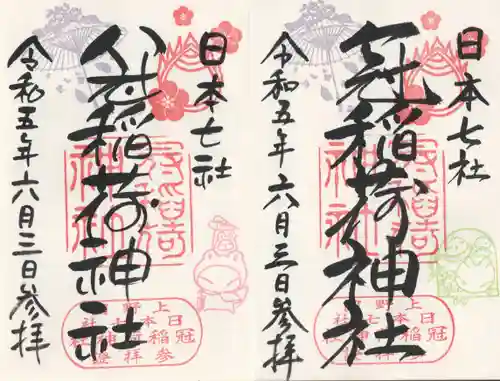 日本七社
冠稲荷神社
令和五年六月三日参拝
上野國
日本七社
冠稲荷神社
参拝證
日本七社
冠稲荷神社
令和五年六月三日参拝
上野國
日本七社
冠稲荷神社
参拝證